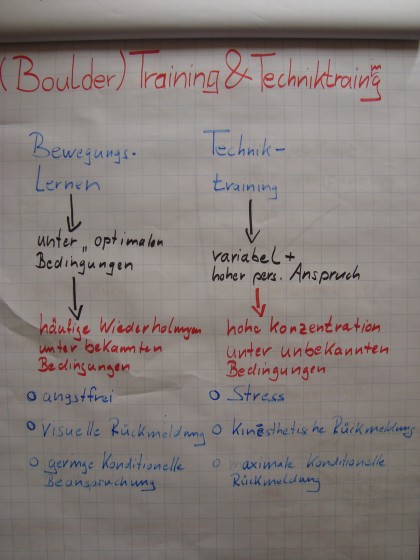 (Boulder) Training & Techniktraining
Bewegungs-
Lernen
unter „optimalen
Bedingungen
häufige Wiederholungen
unter bekannten
Bedingungen
o angstfrei
o Visuelle Rückmeldung
o geringe Konditionelle
Beanspruchung
Technik-
training
variabel +
hoher pers. Anspruch
hohe Konzentration
unter unbekannten
Bedingungen
o Stress
o Kinästhetische Rückmeldung
o maximale Konditionelle
Rückmeldung